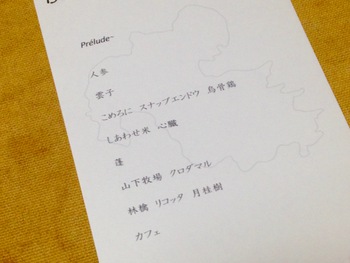 Prélude~
人参
雲子
こめろに スナップエンドウ 烏骨鶏
しあわせ米 心臓
蓬
山下牧場 クロダマル
林檎 リコッタ 月桂樹
カフェ